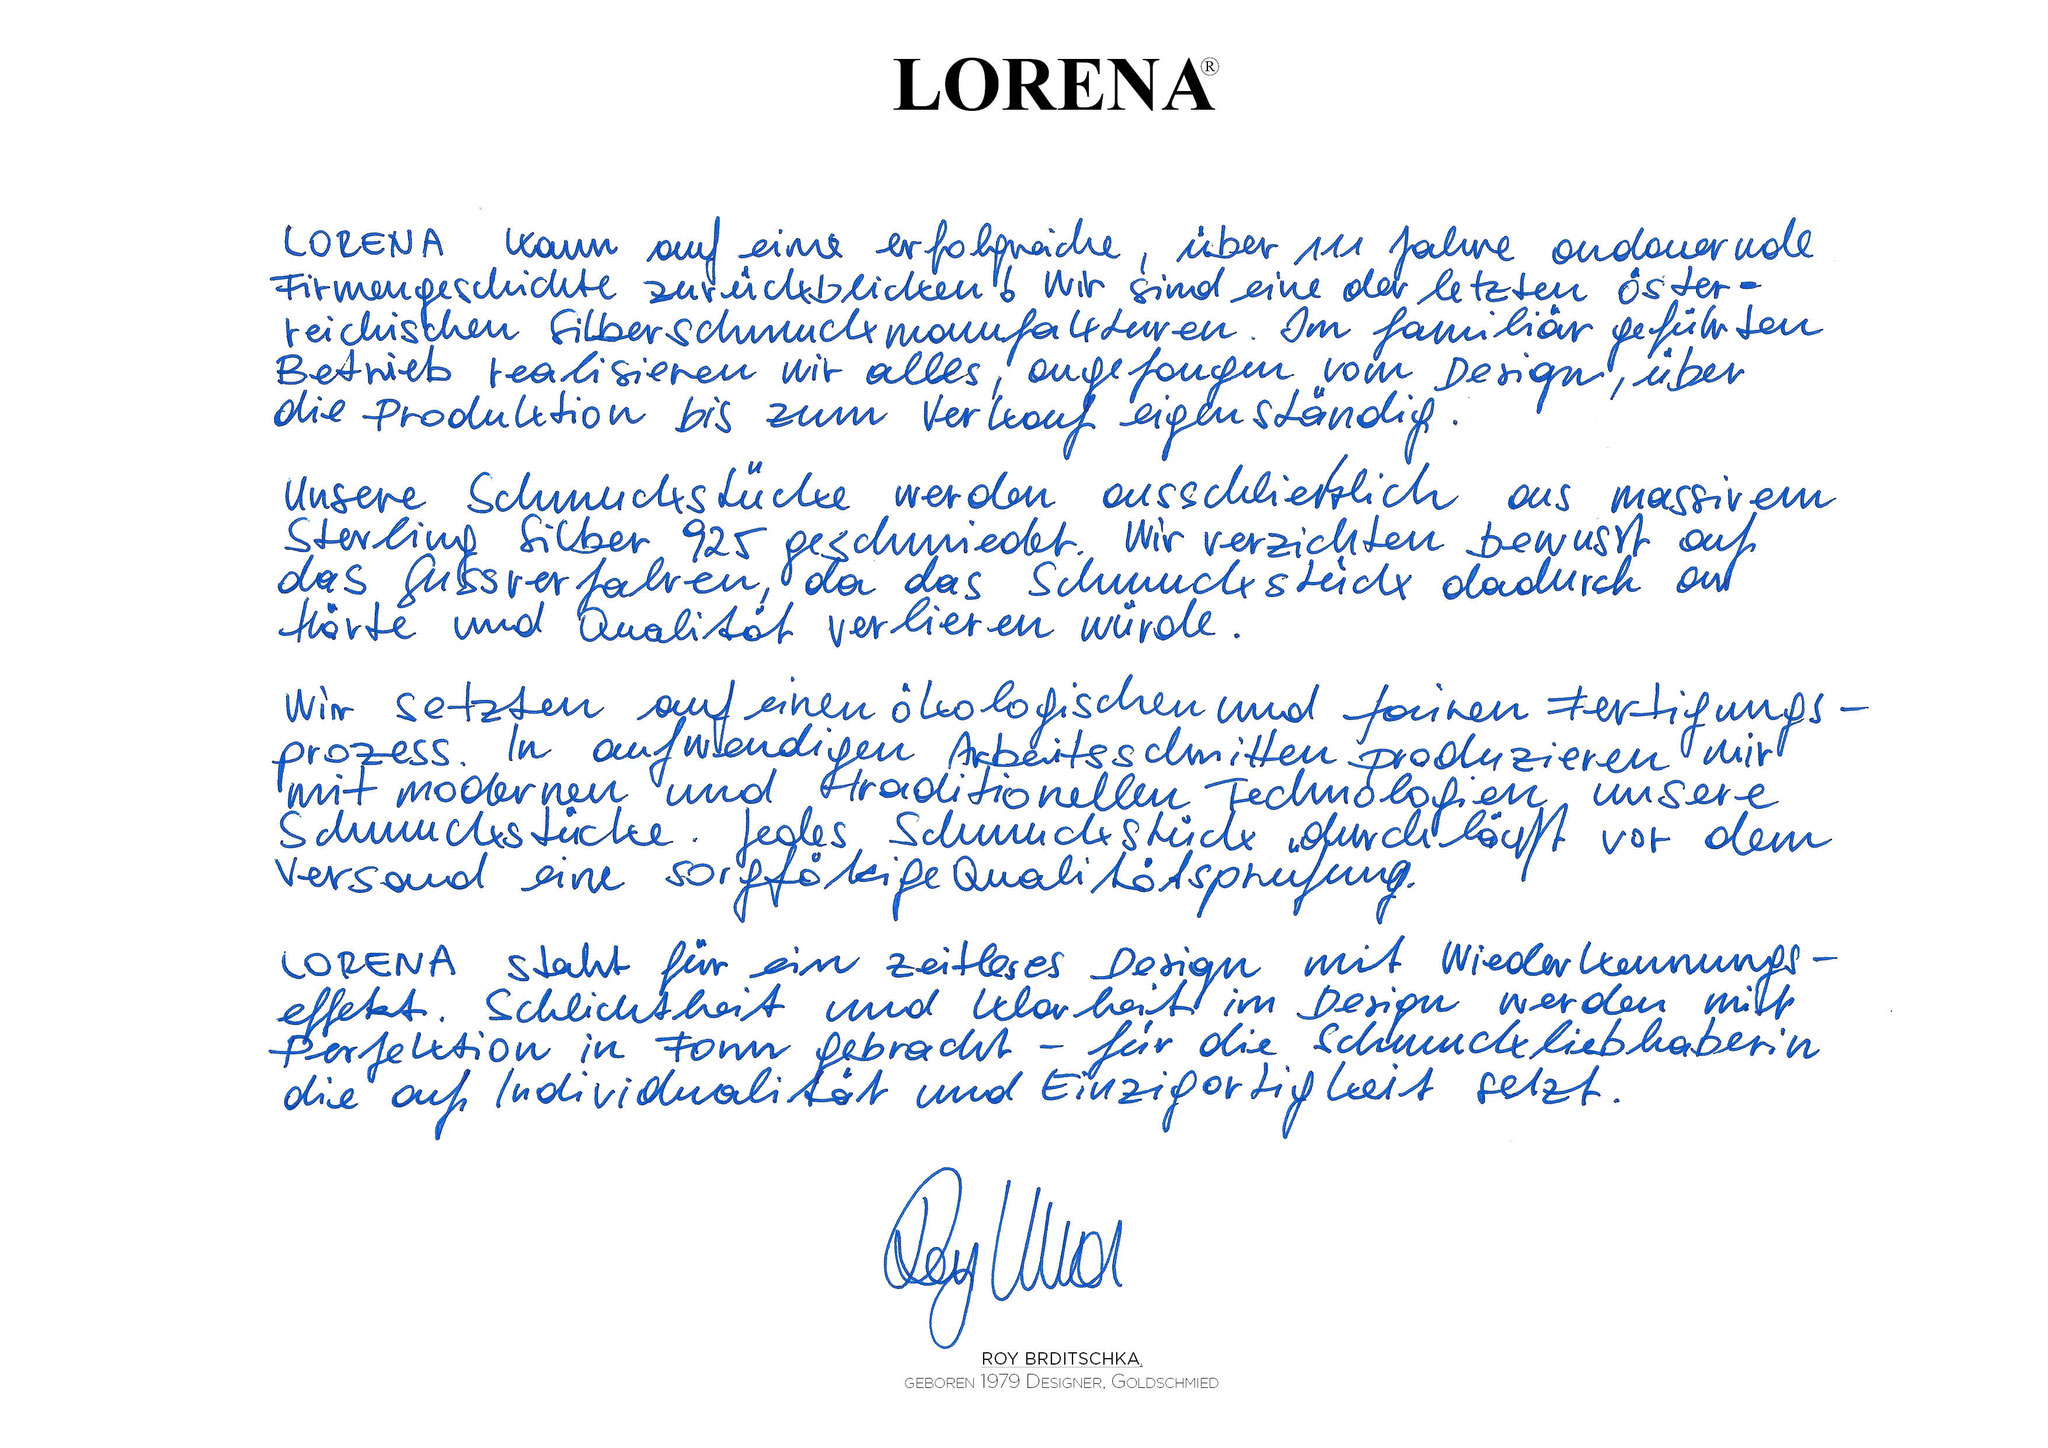 LORENA®
LORENA kann auf eine erfolgreiche, über 111 Jahre andauernde
Firmengeschichte zurückblicken! Wir sind eine der letzten öster-
reichischen Silberschmuckmanufakturen. Im familiär geführten
Betrieb realisieren wir alles, angefangen vom Design, über
die Produktion bis zum Verkauf eigenständig.
Unsere Schmuckstücke werden ausschließlich aus massivem
Sterling Silber 925 geschmiedet. Wir verzichten bewusst auf
das Gussverfahren, da das Schmuckstück dadurch an
Härte und Qualität verlieren würde.
Wir setzten auf einen ökologischen und fairen Fertigungs-
prozess. In aufwendigen Arbeitsschritten produzieren wir
mit modernen und traditionellen Technologien unsere
Schmuckstücke. Jedes Schmuckstück durchläuft vor dem
Versand eine sorgfältige Qualitätsprüfung.
LORENA steht für ein zeitloses Design mit Wiederkennungs-
effekt. Schlichtheit und Klarheit im Design werden mit
Perfektion in Form gebracht - für die Schmuckliebhaberin
die auf Individualität und Einzigartigkeit setzt.
ROY BRDITSCHKA,
GEBOREN 1979 DESIGNER, GOLDSCHMIED